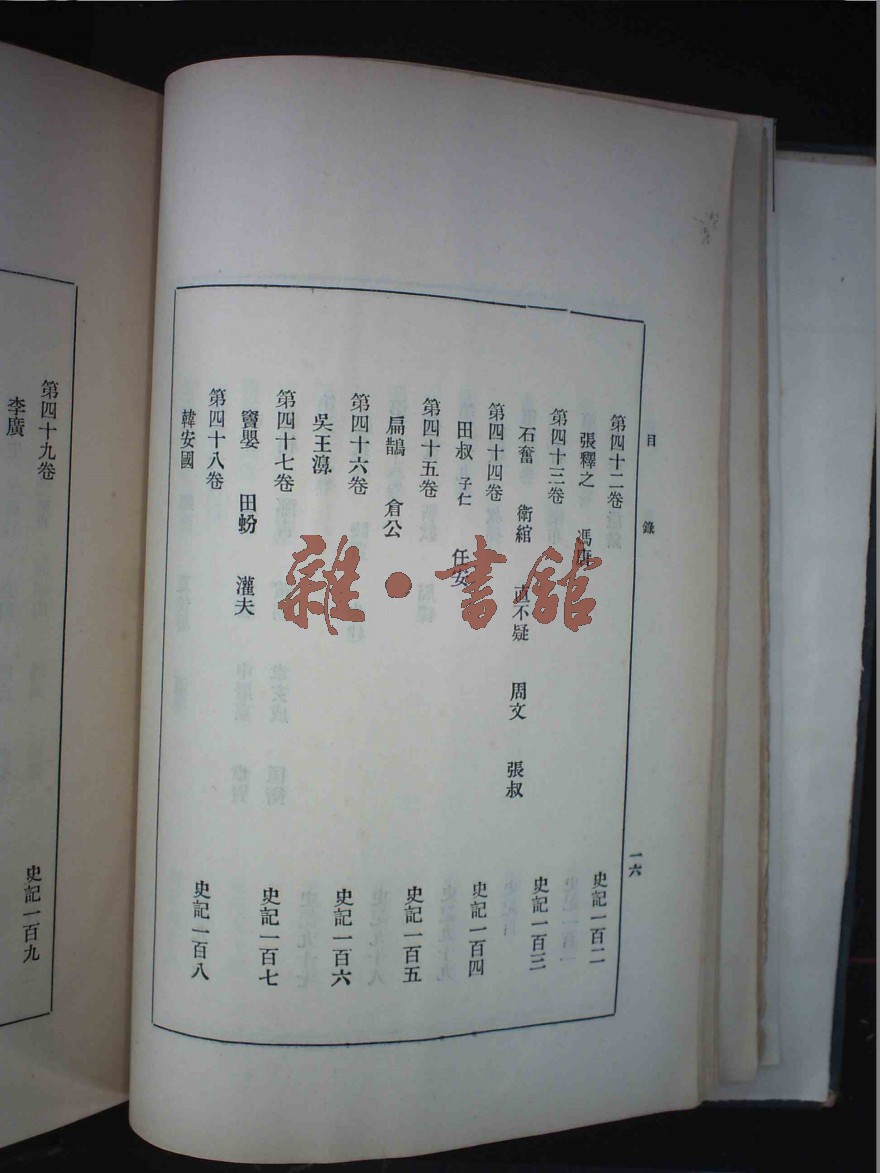 目錄
一六
第四十二卷 史記一百二
張釋之 馮唐
第四十三卷 史記一百三
石奮 衛綰 直不疑 周文 張叔
第四十四卷 史記一百四
田叔 子仁 任安
第四十五卷 史記一百五
扁鵲 倉公
第四十六卷 史記一百六
吳王濞
第四十七卷 史記一百七
竇嬰 田蚡 灌夫
第四十八卷 史記一百八
韓安國
第四十九卷 史記一百九
李廣
雜·書館